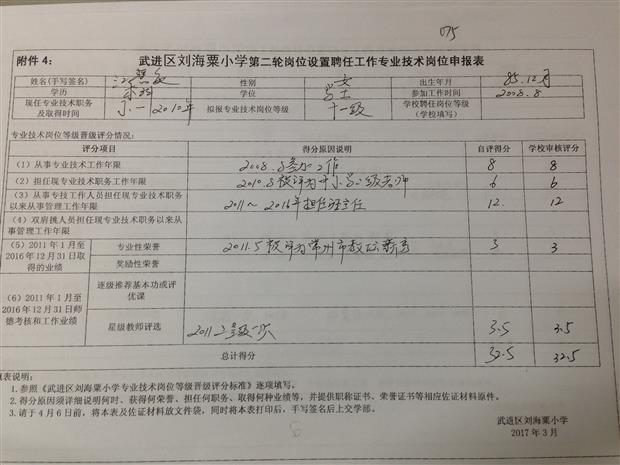 075
附件 4： 武进区刘海粟小学第二轮岗位设置聘任工作专业技术岗位申报表
姓名(手写签名) 性别 女 出生年月 85.12月
学历 本科 学位 学士 参加工作时间 2008.8
现任专业技术职务及取得时间 小一 2010年 拟报专业技术岗位等级 十一级 学校聘任岗位等级（学校填写）
专业技术岗位等级晋级评分情况：
评分项目 得分原因说明 自评得分 学校审核评分
（1）从事专业技术工作年限 2008.8参加工作 8 8
（2）担任现专业技术职务工作年限 2010.8被评为 6 6
（3）从事专技工作人员担任现专业技术职务以来从事管理工作年限 2011～2016年担任班主任 12 12
（4）双肩挑人员担任现专业技术职务以来从事管理工作年限
（5）2011 年 1 月至 2016 年 12 月 31 日取得的业绩 专业性荣誉 2011.5被评为常州市教坛新秀 3 3
奖励性荣誉
（6）2011 年 1 月至 2016 年 12 月 31 日师德考核和工作业绩 逐级推荐基本功或评优课
星级教师评选 2011二星级一次 3.5 3.5
总计得分 32.5 32.5
填表说明：
1.参照《武进区刘海粟小学专业技术岗位等级晋级评分标准》逐项填写。
2.得分原因须详细说明何时、获得何荣誉、担任何职务、取得何种业绩等，并提供职称证书、荣誉证书等相应佐证材料原件。
3.请于 4 月 6 日前，将本表及佐证材料放文件袋，同时将本表打印后，手写签名后上交学部。
武进区刘海粟小学
2017 年 3 月